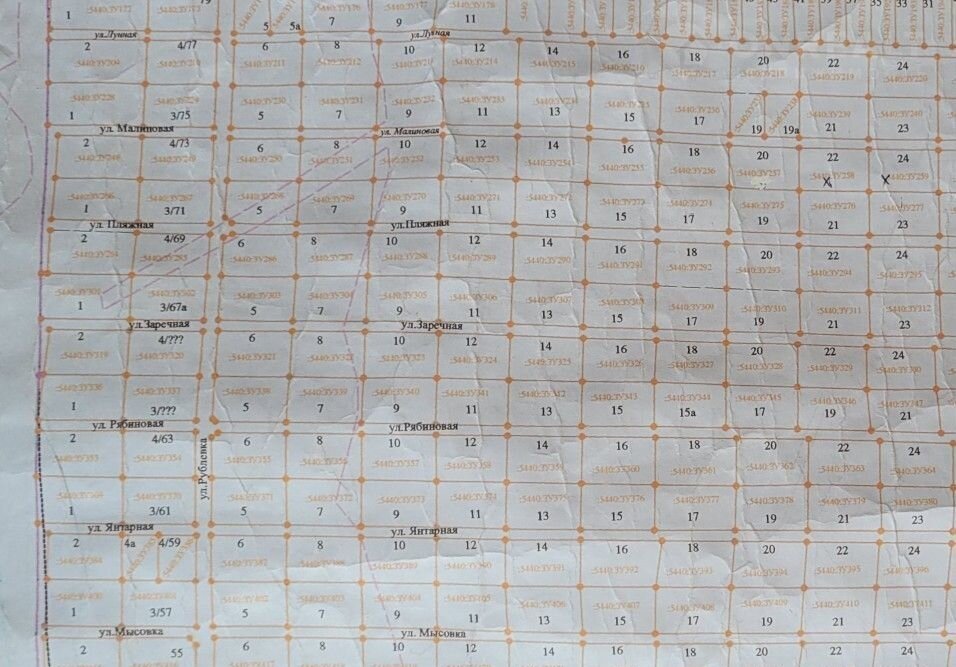 79
:5440:ЗУ176 :5440:ЗУ177 :5440:ЗУ178
1 5 5а 7 9 11 35 33 31
ул.Лунная ул.Лунная
2 4/77 6 8 10 12 14 16 18 20 22 24
:5440:ЗУ209 :5440:ЗУ210 :5440:ЗУ211 :5440:ЗУ212 :5440:ЗУ214 :5440:ЗУ215 :5440:ЗУ216 :5440:ЗУ217 :5440:ЗУ218 :5440:ЗУ219 :5440:ЗУ220
:5440:ЗУ228 :5440:ЗУ229 :5440:ЗУ230 :5440:ЗУ231 :5440:ЗУ232 :5440:ЗУ233 :5440:ЗУ234 :5440:ЗУ235 :5440:ЗУ236 :5440:ЗУ239 :5440:ЗУ240
1 3/75 5 7 9 11 13 15 17 19 19а 21 23
ул. Малиновая ул. Малиновая
2 4/73 6 8 10 12 14 16 18 20 22 24
:5440:ЗУ248 :5440:ЗУ249 :5440:ЗУ250 :5440:ЗУ251 :5440:ЗУ252 :5440:ЗУ253 :5440:ЗУ254 :5440:ЗУ255 :5440:ЗУ256 :5440:ЗУ257 :5440:ЗУ258 :5440:ЗУ259
х х
:5440:ЗУ266 :5440:ЗУ267 :5440:ЗУ268 :5440:ЗУ269 :5440:ЗУ270 :5440:ЗУ271 :5440:ЗУ272 :5440:ЗУ273 :5440:ЗУ274 :5440:ЗУ275 :5440:ЗУ276 :5440:ЗУ277
1 3/71 5 7 9 11 13 15 17 19 21 23
ул. Пляжная ул.Пляжная
2 4/69 6 8 10 12 14 16 18 20 22 24
:5440:ЗУ284 :5440:ЗУ285 :5440:ЗУ286 :5440:ЗУ287 :5440:ЗУ288 :5440:ЗУ289 :5440:ЗУ290 :5440:ЗУ291 :5440:ЗУ292 :5440:ЗУ293 :5440:ЗУ294 :5440:ЗУ295
:5440:ЗУ301 :5440:ЗУ302 :5440:ЗУ303 :5440:ЗУ304 :5440:ЗУ305 :5440:ЗУ306 :5440:ЗУ307 :5440:ЗУ308 :5440:ЗУ309 :5440:ЗУ310 :5440:ЗУ311 :5440:ЗУ312
1 3/67а 5 7 9 11 13 15 17 19 21 23
ул.Заречная ул.Заречная
2 4/??? 6 8 10 12 14 16 18 20 22 24
:5440:ЗУ319 :5440:ЗУ320 :5440:ЗУ321 :5440:ЗУ322 :5440:ЗУ323 :5440:ЗУ324 :5440:ЗУ325 :5440:ЗУ326 :5440:ЗУ327 :5440:ЗУ328 :5440:ЗУ329 :5440:ЗУ330
:5440:ЗУ336 :5440:ЗУ337 :5440:ЗУ338 :5440:ЗУ339 :5440:ЗУ340 :5440:ЗУ341 :5440:ЗУ342 :5440:ЗУ343 :5440:ЗУ344 :5440:ЗУ345 :5440:ЗУ346 :5440:ЗУ347
1 3/??? 5 7 9 11 13 15 15а 17 19 21
ул. Рябиновая ул.Рябиновая
2 4/63 ул.Рублевка 6 8 10 12 14 16 18 20 22 24
:5440:ЗУ353 :5440:ЗУ354 :5440:ЗУ355 :5440:ЗУ356 :5440:ЗУ357 :5440:ЗУ358 :5440:ЗУ359 :5440:ЗУ360 :5440:ЗУ361 :5440:ЗУ362 :5440:ЗУ363 :5440:ЗУ364
:5440:ЗУ369 :5440:ЗУ370 :5440:ЗУ371 :5440:ЗУ372 :5440:ЗУ373 :5440:ЗУ374 :5440:ЗУ375 :5440:ЗУ376 :5440:ЗУ377 :5440:ЗУ378 :5440:ЗУ379 :5440:ЗУ380
1 3/61 5 7 9 11 13 15 17 19 21 23
ул. Янтарная ул. Янтарная
2 4а 4/59 6 8 10 12 14 16 18 20 22 24
:5440:ЗУ384 :5440:ЗУ387 :5440:ЗУ388 :5440:ЗУ389 :5440:ЗУ390 :5440:ЗУ391 :5440:ЗУ392 :5440:ЗУ393 :5440:ЗУ394 :5440:ЗУ395 :5440:ЗУ396
:5440:ЗУ400 :5440:ЗУ401 :5440:ЗУ402 :5440:ЗУ403 :5440:ЗУ404 :5440:ЗУ405 :5440:ЗУ406 :5440:ЗУ407 :5440:ЗУ408 :5440:ЗУ409 :5440:ЗУ410 :5440:ЗУ411
1 3/57 5 7 9 11 13 15 17 19 21 23
ул.Мысовка ул. Мысовка
2 55 6 8 10 12 14 16 18 20 22 24